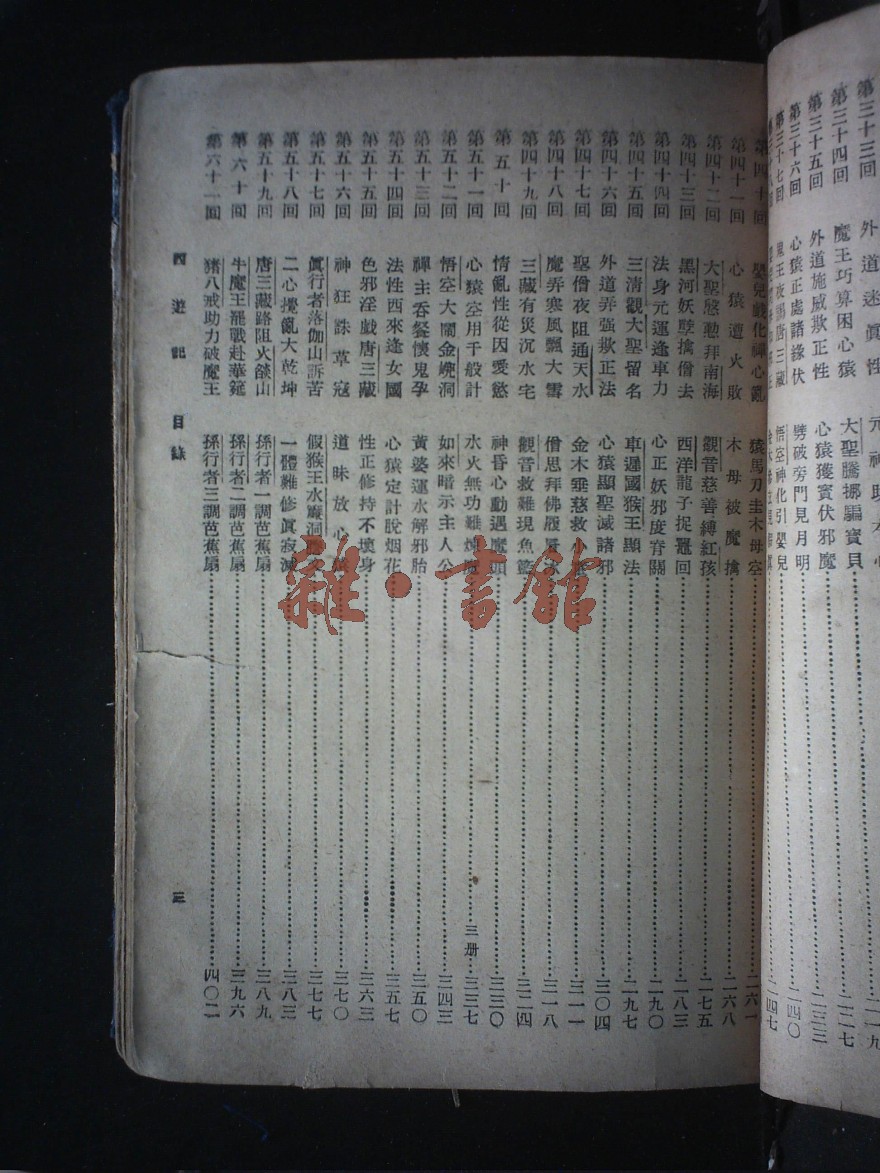 第三十三回 外道迷眞性 元神助本心
第三十四回 魔王巧算困心猿 大聖騰挪騙寶貝 二二七
第三十五回 外道施威欺正性 心猿獲寶伏邪魔 二三三
第三十六回 心猿正處諸緣伏 劈破旁門見月明 二四〇
第三十七回 鬼王夜謁唐三藏 悟空神化引嬰兒 二四七
第四十回 嬰兒戲化禪心亂 猿馬刀圭木母空 二六一
第四十一回 心猿遭火敗 木母被魔擒 二六八
第四十二回 大聖慇懃拜南海 觀音慈善縛紅孩 二七五
第四十三回 黑河妖孽擒僧去 西洋龍子捉鼉回 二八三
第四十四回 法身元運逢車力 心正妖邪度脊關 二九〇
第四十五回 三清觀大聖留名 車遲國猴王顯法 二九七
第四十六回 外道弄強欺正法 心猿顯聖滅諸邪 三〇四
第四十七回 聖僧夜阻通天水 金木垂慈救小 三一一
第四十八回 魔弄寒風飄大雪 僧思拜佛履層冰 三一八
第四十九回 三藏有災沉水宅 觀音救難現魚籃 三二四
第五十回 情亂性從因愛慾 神昏心動遇魔頭 三三〇
第五十一回 心猿空用千般計 水火無功難煉魔 三册 三三七
第五十二回 悟空大鬧金㠋洞 如來暗示主人公 三四三
第五十三回 禪主吞餐懷鬼孕 黃婆運水解邪胎 三五〇
第五十四回 法性西來逢女國 心猿定計脫烟花 三五七
第五十五回 色邪淫戲唐三藏 性正修持不壞身 三六三
第五十六回 神狂誅草寇 道昧放心猿 三七〇
第五十七回 眞行者落伽山訴苦 假猴王水簾洞謄文 三七七
第五十八回 二心攪亂大乾坤 一體難修眞寂滅 三八三
第五十九回 唐三藏路阻火燄山 孫行者一調芭蕉扇 三八九
第六十回 牛魔王罷戰赴華筵 孫行者二調芭蕉扇 三九六
第六十一回 豬八戒助力破魔王 孫行者三調芭蕉扇 四〇二
西遊記 目錄 三
雜·書館